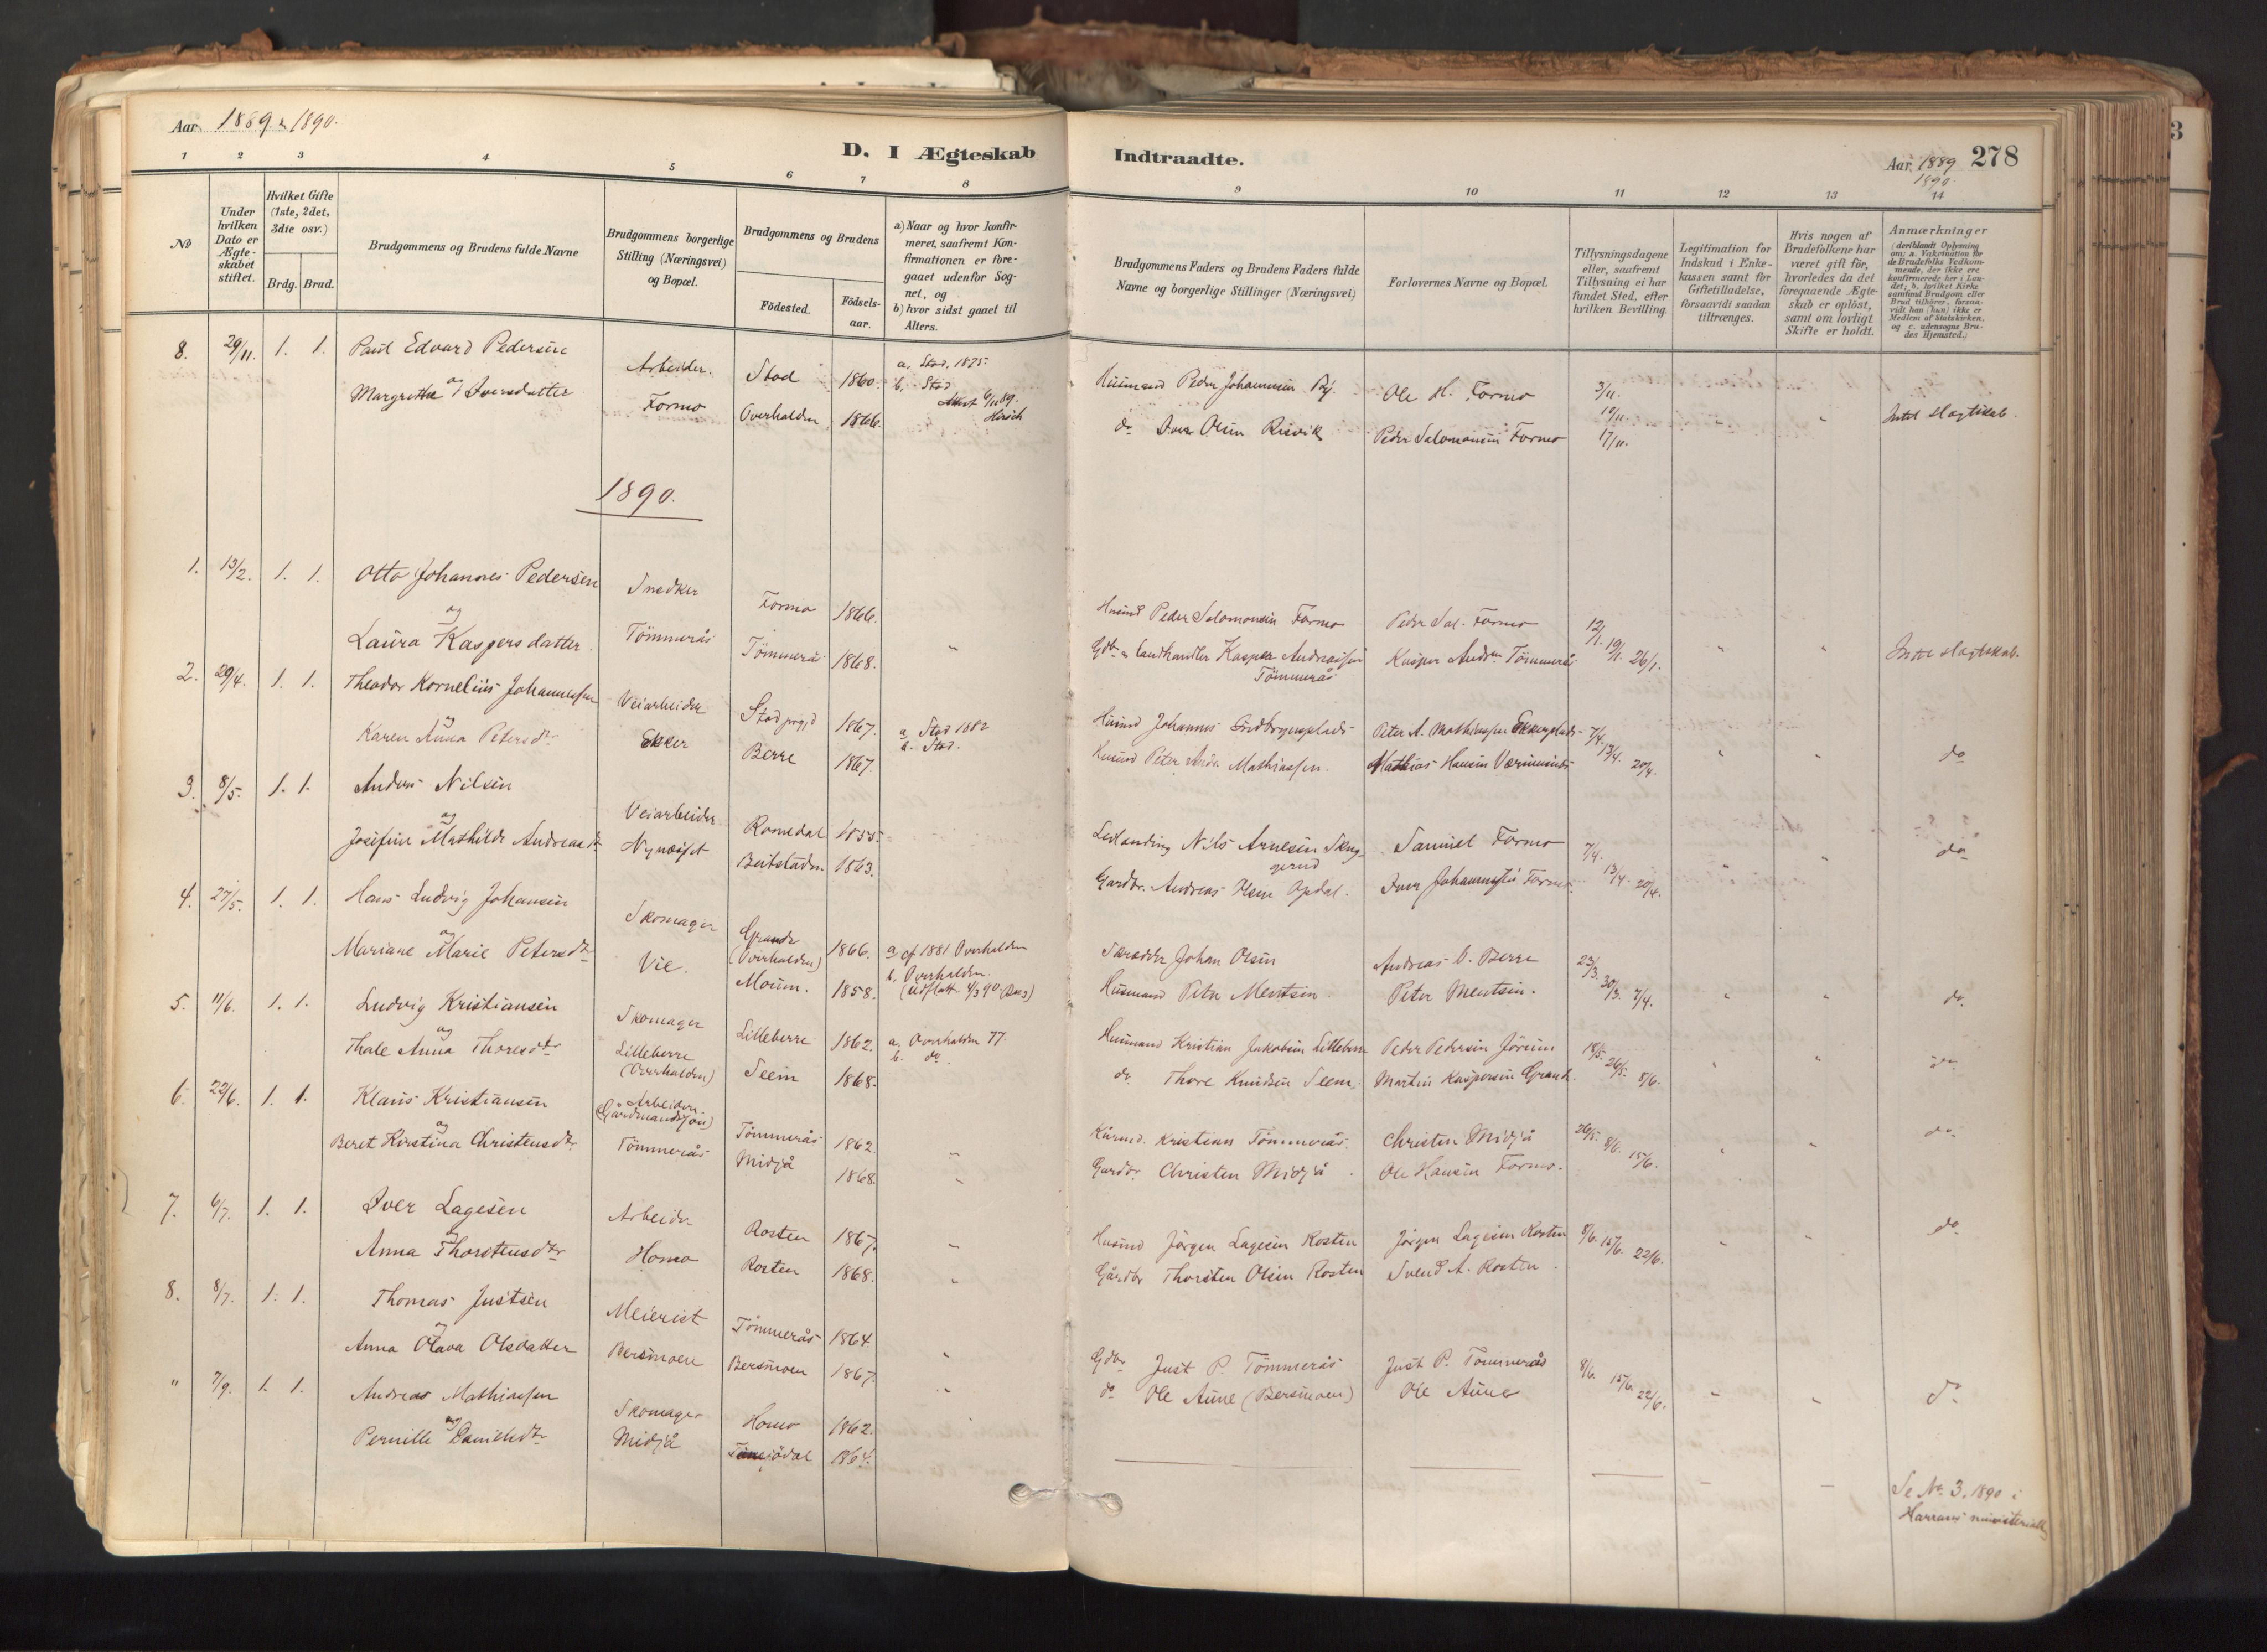 Aar 1889 & 1890.
D. I Ægteskab Indtraadte.
Aar 1889 1890. 278
1 2 3 4 5 6 7 8 9 10 11 12 13 14
No
Under hvilken Dato er Ægteskabet stiftet.
Hvilket Gifte (1ste, 2det, 3die osv.)
Brdg. Brud.
Brudgommens og Brudens fulde Navne
Brudgommens borgerlige Stilling (Næringsvei) og Bopæl.
Brudgommens og Brudens
Födested. Födsels-aar.
a) Naar og hvor konfirmeret, saafremt Konfirmationen er foregaaet udenfor Sognet, og
b) hvor sidst gaaet til Alters.
Brudgommens Faders og Brudens Faders fulde Navne og borgerlige Stillinger (Næringsvei)
Forlovernes Navne og Bopæl.
Tillysningsdagene eller, saafremt Tillysning ei har fundet Sted, efter hvilken Bevilling.
Legitimation for Indskud i Enkekassen samt for Giftetilladelse, forsaavidt saadan tiltrænges.
Hvis nogen af Brudefolkene har været gift för, hvorledes da det foregaaende Ægteskab er oplöst, samt om lovligt Skifte er holdt.
Anmærkninger
(deriblandt Oplysning om: a. Vakcination for de Brudefolks Vedkommende, der ikke ere konfirmerede her i Landet; b. hvilket Kirkesamfund Brudgom eller Brud tilhører, forsaavidt han (hun) ikke er Medlem af Statskirken, og c. udensogns Brudes Hjemsted.)
8. 29/11. 1. 1. Paul Edvard Pedersen Arbeider. Stod 1860. a, Stod, 1875. b. Stod Husmand Peder Johannesen Ole H. Formo 3/11.
og Margrethe Iversdatter Formo Overhalden 1866. Attest 6/11 89. Hirsch do Iver Olsen Risvik Peder Salomonsen Formo 10/11. 17/11. " Intet Slagtskab.
1890.
1. 13/2. 1. 1. Otto Johannes Pedersen Snedker Formo 1866. Husmd Peder Salomonsen Formo Peder Sal. Formo 12/1. 19/1. 26/1.
og Laura Kaspersdatter. Tömmerås Tömmerås 1868. " Gdbr & Landhandler Kasper Andreassen Tömmerås Kasper Andrn Tömmerås " " Intet Slagtskab.
2. 29/4. 1. 1. Theodor Kornelius Johannessen Veiarbeider Stod prgjd 1867. a, Stod 1882 b. Stod. Husmd Johannes Peter A. Mathiassen 7/4. 13/4. 20/4.
og Karen Anna Petersdtr Ekker Berre 1867. Husmd Peter Andr. Mathiassen. Mathias Hansen " " do
3. 8/5. 1. 1. Anders Nilsen Veiarbeider Romedal 1855. Nils Arnesen Samuel Formo 7/4. 13/4. 20/4.
og Josefine Mathilde Andreasdtr Nynæset Beitstaden 1863. Gardbr. Andreas Olsen Opdal. Iver Johannessen Formo. " " do
4. 27/5. 1. 1. Hans Ludvig Johansen Skomager Grande (Overhalden) 1866. a, cf 1881 Overhalden b. Overhalden. Skrædder Johan Olsen Andreas C. Berre 23/3. 30/3. 7/4.
og Mariane Marie Petersdtr Vie. Moum. 1858. Husmand Petr Mentsen. Peter Mentsen. " " do.
5. 11/6. 1. 1. Ludvig Kristiansen Skomager Lilleberre 1862. a, Overhalden 77. b. do. Husmand Kristian Jakobsen Lilleberre Peder Pedersen Jörum 18/5. 26/5. 8/6.
og Thale Anna Thoresdtr Lilleberre (Overhalden) Seem 1868. do. Thore Knudsen Seem. Martin Kaspersen Grande. " do
6. 22/6. 1. 1. Klaus Kristiansen Arbeider. (Gårdmandssön) Tömmerås 1862. " Kårmd. Kristian Tömmerås. Christen Midjå 26/5. 8/6. 15/6.
og Beret Kirstina Christensdtr. Tömmerås Midjå 1868. " Gardbr. Christen Midjå. Ole Hansen Formo. " " do.
7. 6/7. 1. 1. Iver Lagesen Arbeider Rosten 1867. " Husmd Jörgen Lagesen Rosten Jörgen Lagesen Rosten 8/6. 15/6. 22/6.
og Anna Thorstensdtr Homo Rosten 1868. " Gårdbr Thorsten Olsen Rosten Svend A. Rosten. " " do
8. 8/7. 1. 1. Thomas Justsen Meierist Tömmerås 1864 " Gdbr. Just P. Tömmerås Just P. Tömmerås 8/6. 15/6. 22/6.
og Anna Olava Olsdatter Bersmoen Bersmoen 1867. " do Ole Aune (Bersmoen) Ole Aune " " do
" 7/9. 1. 1. Andreas Mathiassen Skomager Homo 1862.
og Pernille Danielsdtr Midjå 1864.
Se No 3. 1890 i Harrans ministerialb